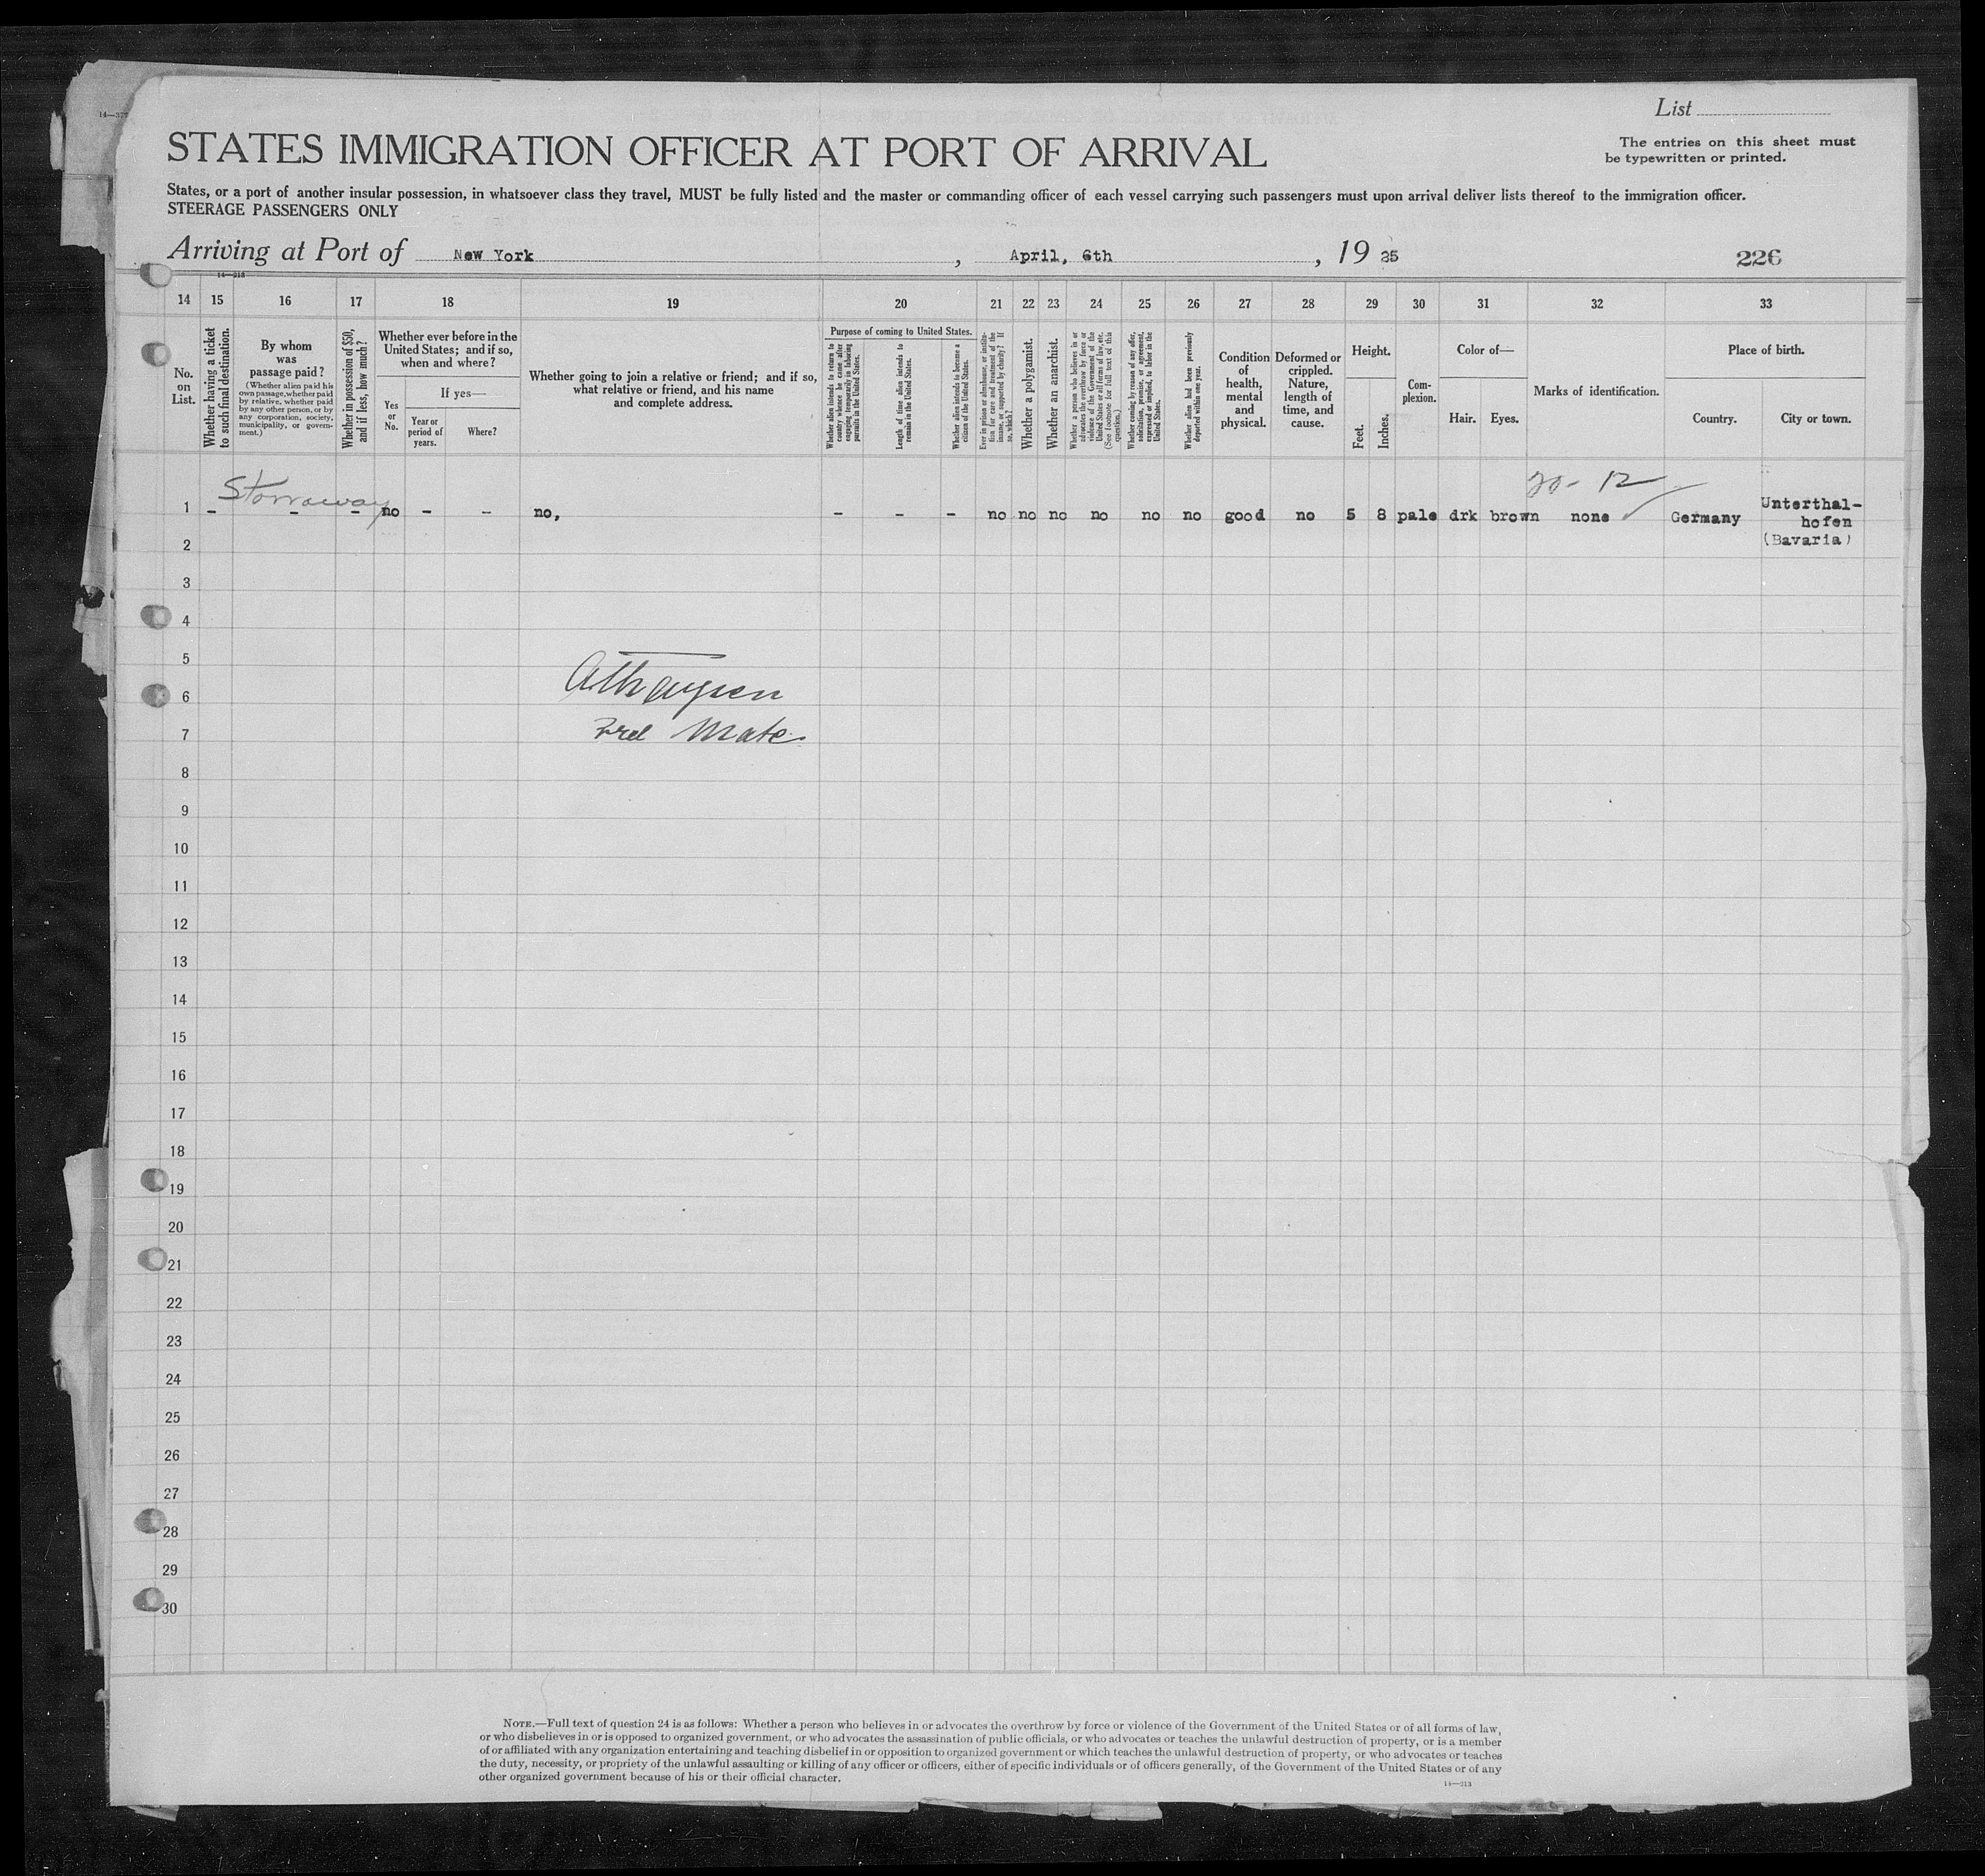 14—377
List
STATES IMMIGRATION OFFICER AT PORT OF ARRIVAL
The entries on this sheet must
be typewritten or printed.
States, or a port of another insular possession, in whatsoever class they travel, MUST be fully listed and the master or commanding officer of each vessel carrying such passengers must upon arrival deliver lists thereof to the immigration officer.
STEERAGE PASSENGERS ONLY
Arriving at Port of New York , April, 6th , 19 25
226
14—213
14 15 16 17 18 19 20 21 22 23 24 25 26 27 28 29 30 31 32 33
No.
on
List.
Whether having a ticket
to such final destination.
By whom
was
passage paid?
(Whether alien paid his
own passage, whether paid
by relative, whether paid
by any other person, or by
any corporation, society,
municipality, or govern-
ment.)
Whether in possession of $50,
and if less, how much?
Whether ever before in the
United States; and if so,
when and where?
Yes
or
No.
If yes—
Year or
period of
years.
Where?
Whether going to join a relative or friend; and if so,
what relative or friend, and his name
and complete address.
Purpose of coming to United States.
Whether alien intends to return to
country whence he came after
engaging temporarily in laboring
pursuits in the United States.
Length of time alien intends to
remain in the United States.
Whether alien intends to become a
citizen of the United States.
Ever in prison or almshouse, or institu-
tion for care and treatment of the
insane, or supported by charity? If
so, which?
Whether a polygamist.
Whether an anarchist.
Whether a person who believes in or
advocates the overthrow by force or
violence of the Government of the
United States or all forms of law, etc.
(See footnote for full text of this
question.)
Whether coming by reason of any offer,
solicitation, promise, or agreement,
expressed or implied, to labor in the
United States.
Whether alien had been previously
deported within one year.
Condition
of
health,
mental
and
physical.
Deformed or
crippled.
Nature,
length of
time, and
cause.
Height.
Feet.
Inches.
Com-
plexion.
Color of—
Hair. Eyes.
Marks of identification.
Place of birth.
Country.
City or town.
Stowaway
20- 12
1 - - - no - - no, - - - no no no no no no good no 5 8 pale drk brown none Germany Unterthal-
hofen
(Bavaria)
2
3
4
5
6
7
3rd Mate
8
9
10
11
12
13
14
15
16
17
18
19
20
21
22
23
24
25
26
27
28
29
30
NOTE.—Full text of question 24 is as follows: Whether a person who believes in or advocates the overthrow by force or violence of the Government of the United States or of all forms of law,
or who disbelieves in or is opposed to organized government, or who advocates the assassination of public officials, or who advocates or teaches the unlawful destruction of property, or is a member
of or affiliated with any organization entertaining and teaching disbelief in or opposition to organized government or which teaches the unlawful destruction of property, or who advocates or teaches
the duty, necessity, or propriety of the unlawful assaulting or killing of any officer or officers, either of specific individuals or of officers generally, of the Government of the United States or of any
other organized government because of his or their official character.
14—213